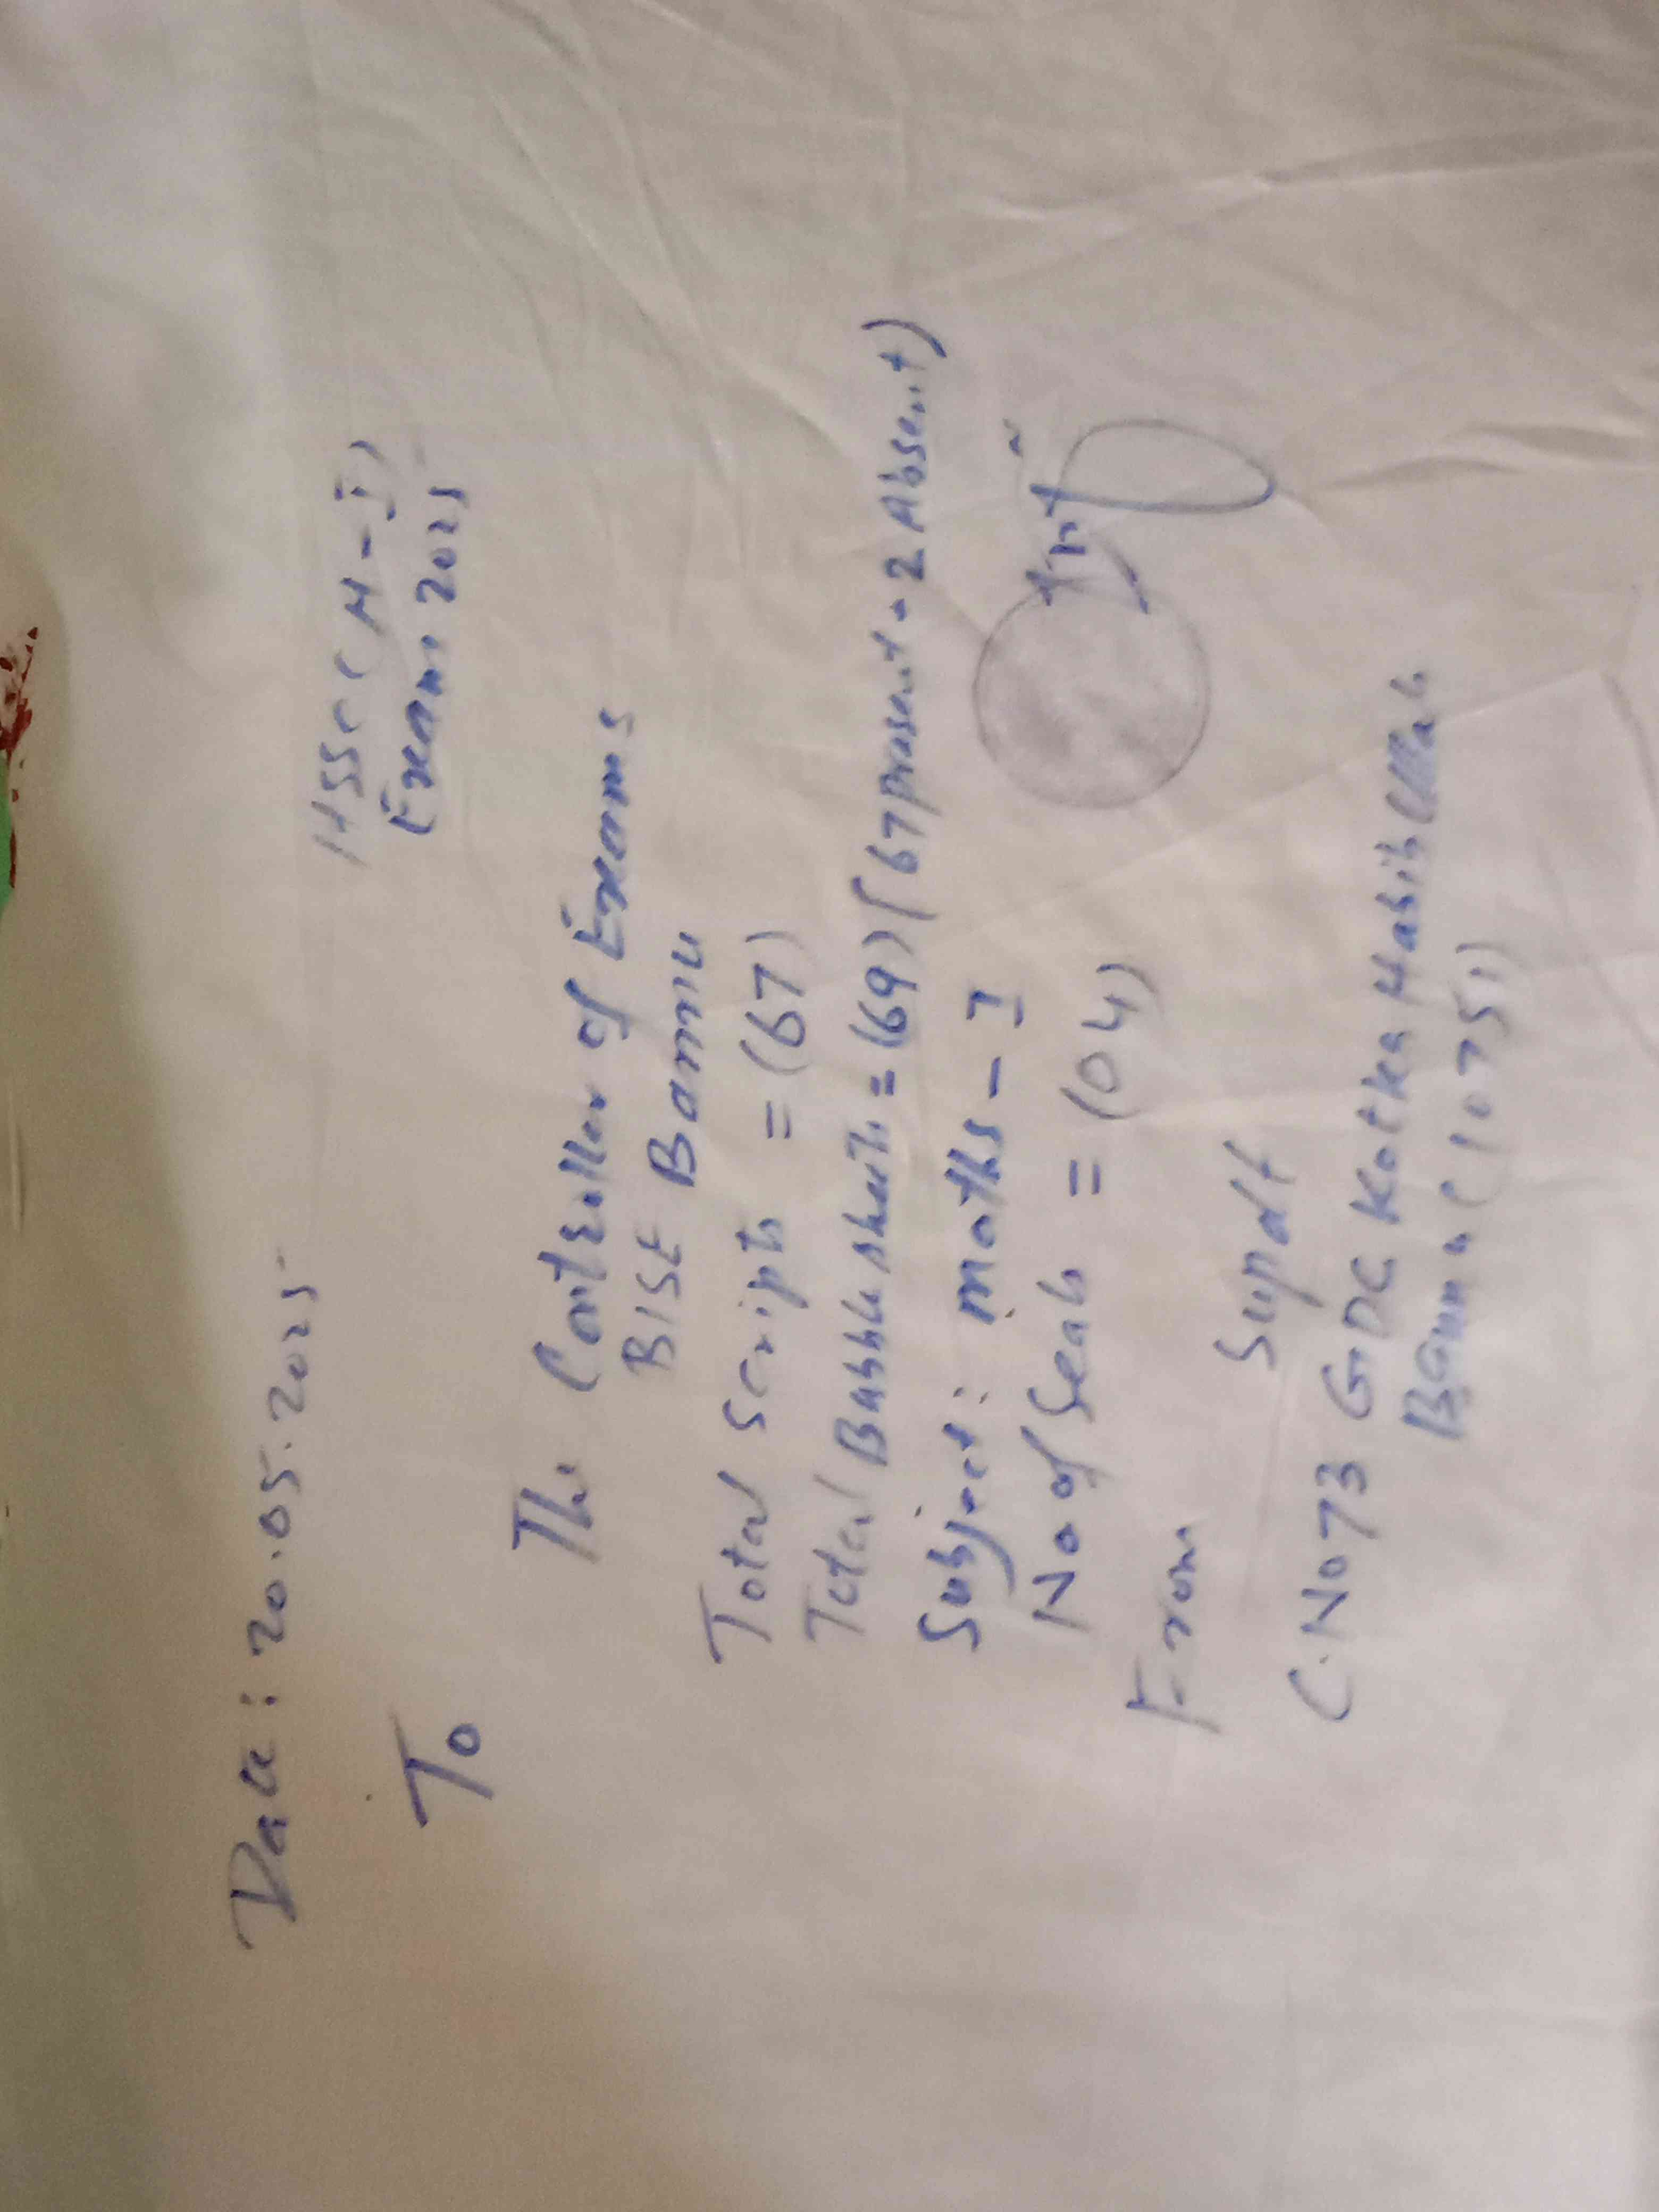 Date: 20.05.2025
HSSC (A-I)
Exam. 2025
To
The Controller of Exams
BISE Bannu
Total Scripts = (67)
Total Bubble sheets = (69) (67 present - 2 Absent)
Subject: maths - I
No of Seals = (04)
From
Supdt
C.No 73 GDC Kotka Habib Ullah
Bannu (10751)